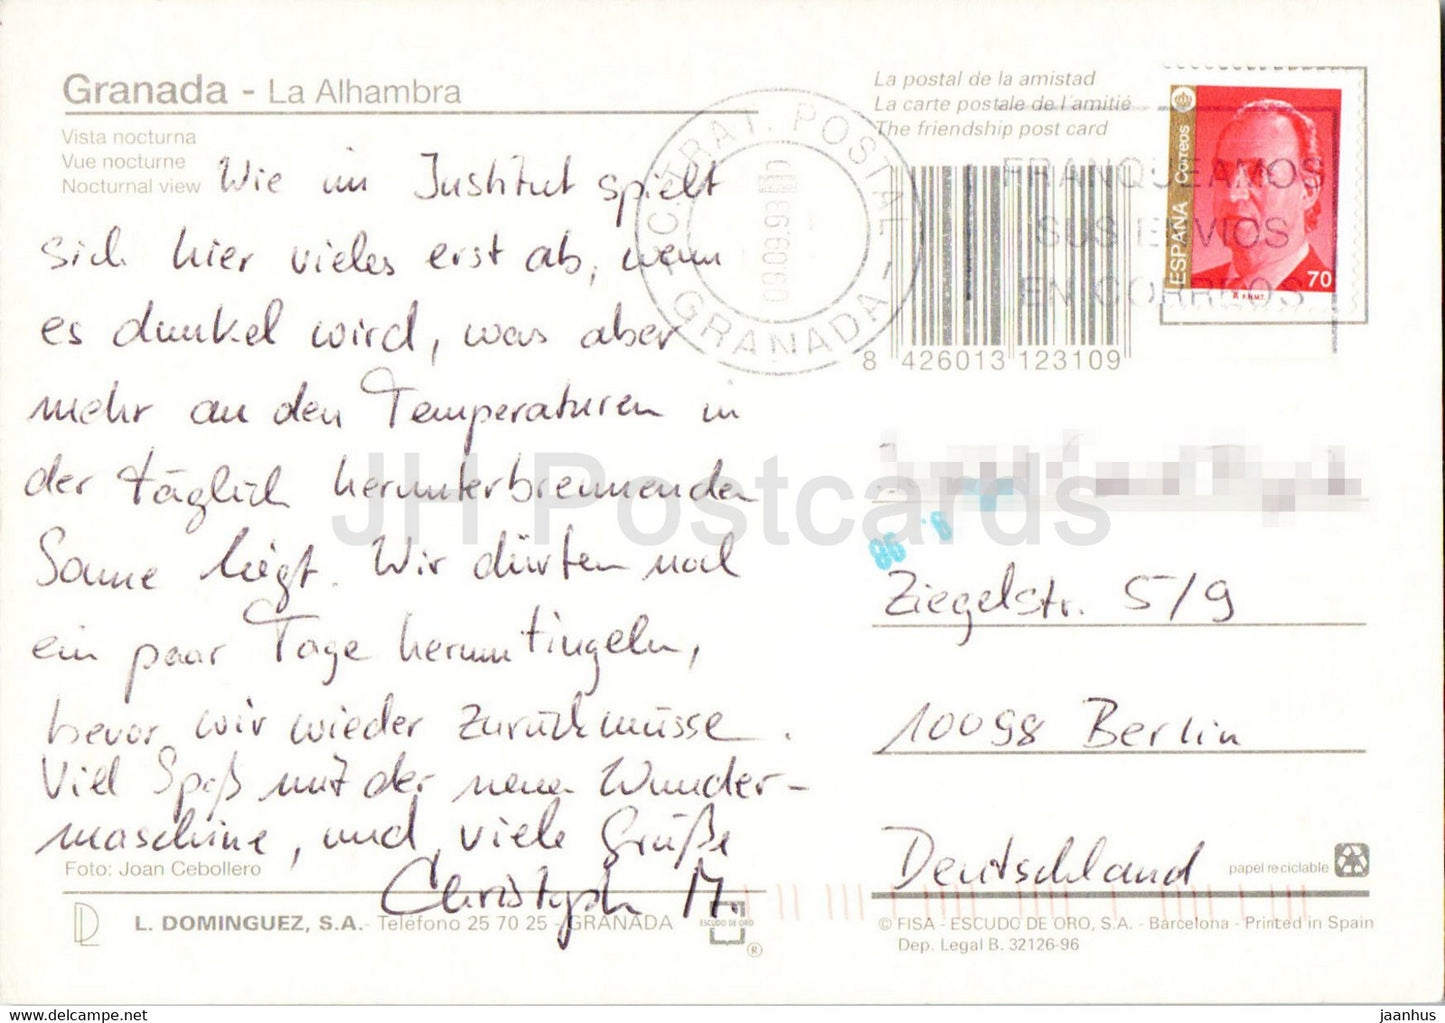 Granada - La Alhambra
Vista nocturna
Vue nocturne
Nocturnal view
Wie im Institut spielt
sich hier vieles erst ab, wenn
es dunkel wird, was aber
mehr an den Temperaturen in
der täglich herunterbrennenden
Sonne liegt. Wir dürfen noch
ein paar Tage herumtingeln,
bevor wir wieder zurück müsse.
Viel Spaß mit der neuen Wunder-
maschine, und viele Grüße
Christoph M.
Foto: Joan Cebollero
L. DOMINGUEZ, S.A. - Teléfono 25 70 25 - GRANADA
ESCUDO DE ORO
®
La postal de la amistad
La carte postale de l'amitié
The friendship post card
POSTAL
GRANADA
09.09.98
FRANQUEAMOS
SUS ENVIOS
EN CORREOS
ESPAÑA Correos
70
8 426013 123109
Ziegelstr. 5/9
10098 Berlin
Deutschland
papel reciclable
© FISA - ESCUDO DE ORO, S.A. - Barcelona - Printed in Spain
Dep. Legal B. 32126-96
JH Postcards
hipstamp.com
jaanhus